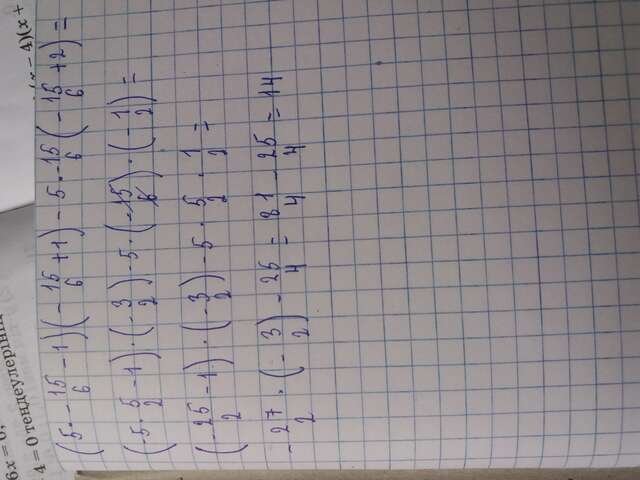 6x = 0,
4 = 0 теңдеулерінің
x − 4)(x +
(5·-15/6 - 1)(-15/6 + 1) - 5·-15/6(-15/6 + 2) =
(-5·5/2 - 1)·(-3/2) - 5·(-15/6)·(-1/2) =
(-25/2 - 1)·(-3/2) - 5·5/2·1/2 =
-27/2·(-3/2) - 25/4 = 81/4 - 25/4 = 14